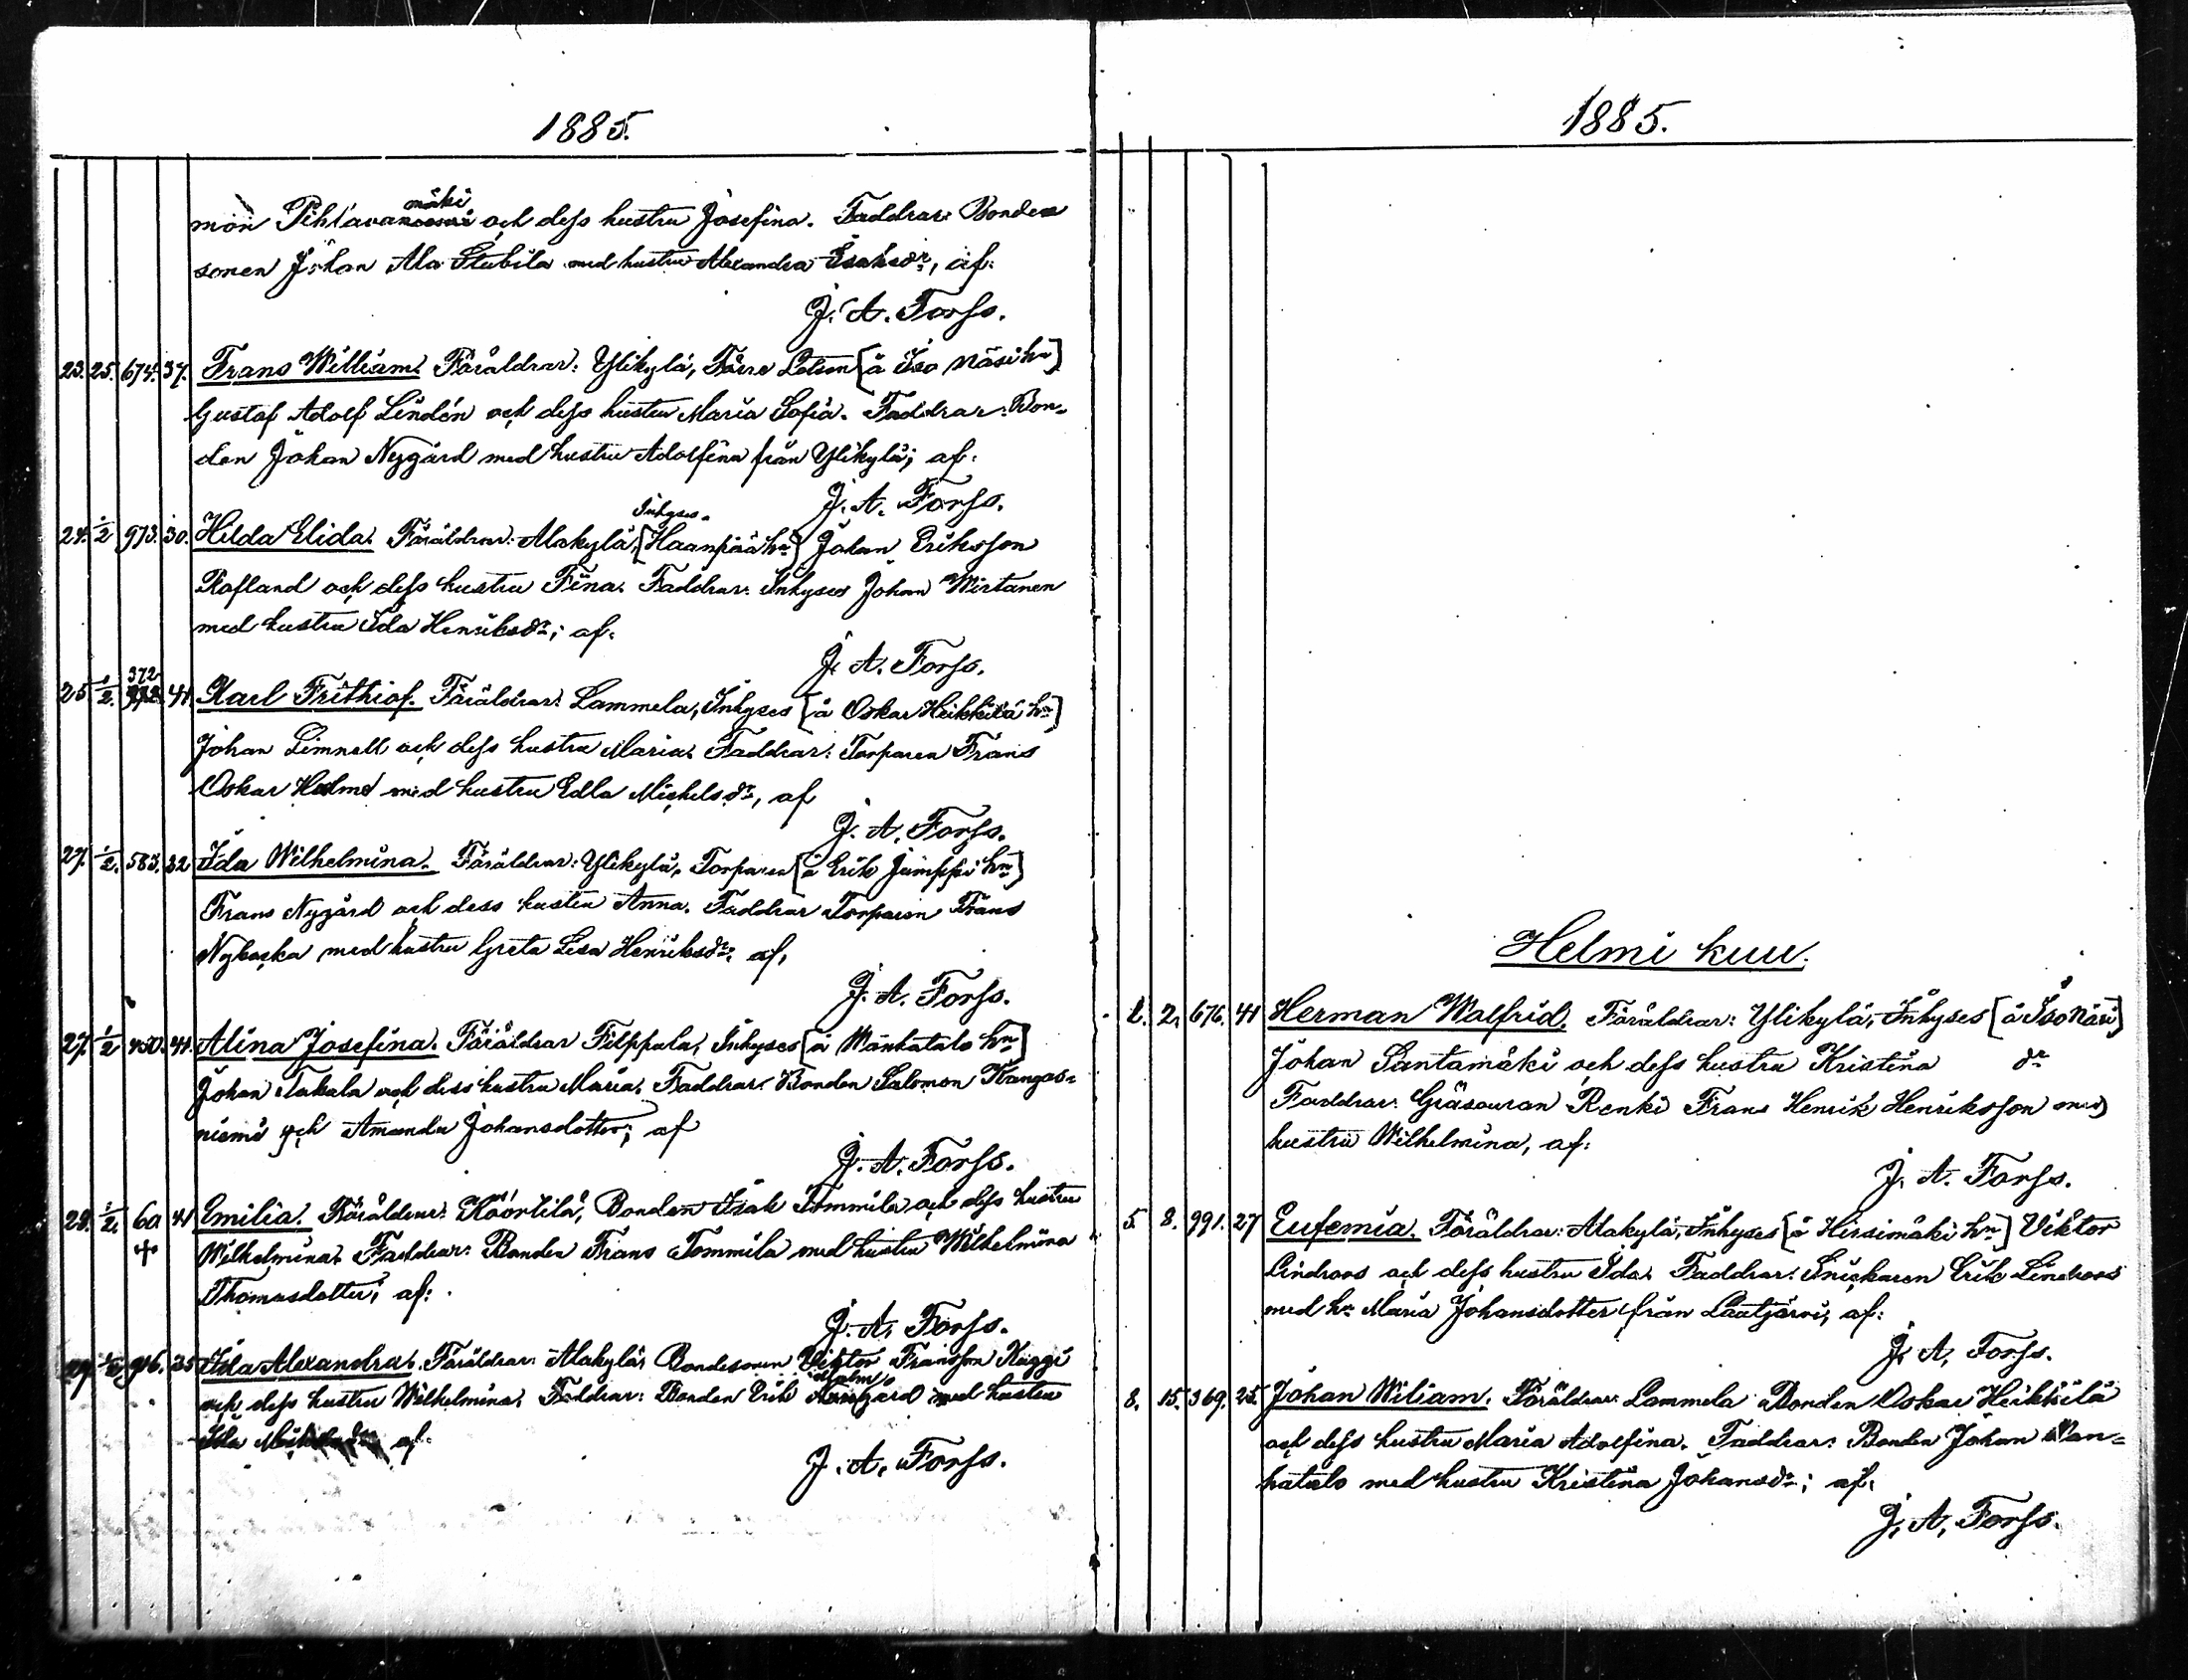 1885.
mon Pihlavamäki och dess hustru Josefina. Faddrar: Bonde
sonen Johan Ala Stubila med hustru Alexandra Isaksdr, af:
J. A. Forss.
23. 25. 674. 37. Frans William. Föräldrar: Ylikylä, [å Iso Näsi hn]
Gustaf Adolf Lindén och dess hustru Maria Sofia. Faddrar: Bon-
den Johan Nygård med hustru Adolfina från Ylikylä; af:
J. A. Forss.
Inhyses
24. 1/2 973. 30. Hilda Elida. Föräldrar: Alakylä, [Haanpää hn] Johan Eriksson
Rofland och dess hustru Fina. Faddrar: Inhyses Johan Wirtanen
med hustru Ida Henriksdr; af:
J. A. Forss.
372
25 1/2. 41 Karl Frithiof. Föräldrar: Lammela, Inhyses [å Oskar Heikkilä hn]
Johan Limnell och dess hustru Maria. Faddrar: Torparen Frans
Oskar Holm med hustru Edla Michelsdr, af
J. A. Forss.
27. 1/2. 583. 32 Ida Wilhelmina. Föräldrar: Ylikylä, Torparen [å Erik Jumppi hn]
Frans Nygård och dess hustru Anna. Faddrar Torparen Frans
Nybacka med hustru Greta Lisa Henriksdr; af,
J. A. Forss.
27. 1/2 450. 41. Alina Josefina. Föräldrar Filppula, Inhyses [å Mankatalo hn]
Johan Takala och dess hustru Maria. Faddrar: Bonden Salomon Kangas-
niemi och Amanda Johansdotter; af
J. A. Forss.
28. 1/2. 60 41 Emilia. Föräldrar: Köörtilä, Bonden Isak Tommila och dess hustru
Wilhelmina. Faddrar: Bonden Frans Tommila med hustru Wilhelmina
Thomasdotter; af:
J. A. Forss.
29 1/2 976. 35 Ida Alexandra. Föräldrar: Alakylä, Bondesonen Viktor Fransson Knggi
och dess hustru Wilhelmina. Faddrar: Bonden Erik med hustru
Ida af:
J. A. Forss.
1885.
Helmi kuu.
2. 2. 676. 41 Herman Walfrid. Föräldrar: Ylikylä, Inhyses [å Iso Näsi]
Johan Santamäki och dess hustru Kristina dr
Faddrar: Renki Frans Henrik Henriksson med
hustru Wilhelmina, af:
J. A. Forss.
5 8. 991. 27 Eufemia. Föräldrar: Alakylä, Inhyses [å Hirsimäki hn] Viktor
Lindroos och dess hustru Ida. Faddrar: Snickaren Erik Lindroos
med hu Maria Johansdotter från Laatjärvi, af:
J. A. Forss.
8. 15. 369. 25. Johan Wiliam. Föräldrar: Lammela Bonden Oskar Heikkilä
och dess hustru Maria Adolfina. Faddrar: Bonden Johan Man-
katalo med hustru Kristina Johansdr; af:
J. A. Forss.